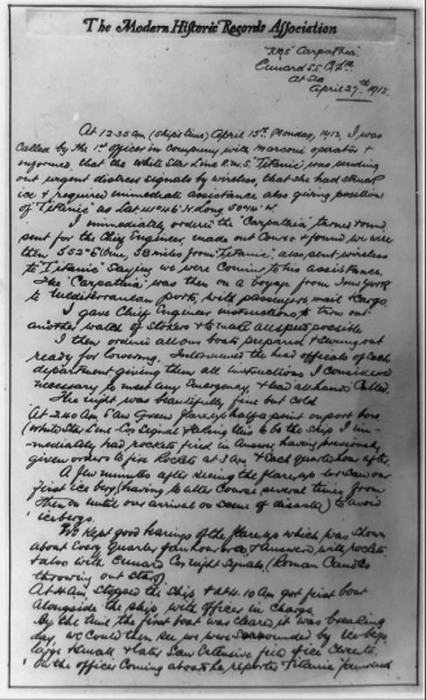 The Modern Historic Records Association
R.M.S. "Carpathia"
Cunard S.S. Co. Ltd
At Sea
April 27th 1912.
At 12.35 am (ship's time) April 15th Monday, 1912, I was
called by the 1st officer in company with marconi operator &
informed, that the White Star Line R.M.S. "Titanic" was sending
out urgent distress signals by wireless, that she had struck
ice & required immediate assistance also giving position
of "Titanic" as Lat 41°46' N. Long 50°14' W.
I immediately ordered the "Carpathia" turned round,
sent for the Chief Engineer, made out Course & found we were
then 58 miles from "Titanic", also sent wireless
to "Titanic" saying we were coming to his assistance.
The "Carpathia" was then on a voyage from New York
to Mediterranean ports, with passengers mail & cargo.
I gave Chief Engineer instructions to turn out
another watch of stokers & to make all speed possible
I then ordered all our boats prepared & swung out
ready for lowering. Interviewed the head officials of each
department giving them all instructions I considered
necessary to meet any emergency, & had all hands called.
The night was beautifully fine but cold.
At 2.40 am saw Green flare half a point on port bow
(White Star Line Co's Signal) & taking this to be the ship I im-
mediately had rockets fired in answer, having previously
given orders to fire Rockets at 3 am & each quarter hour after.
A few minutes after seeing the flare we saw our
first iceberg (having to alter course several times from
then on until our arrival on scene of disaster) to avoid
icebergs.
We kept good bearings of the flare which was shown
about every quarter of an hour & answered with rockets
& also with Cunard Co's night signals, (Roman Candles
throwing out stars).
At 4 am stopped the ship, & at 4.10 am got first boat
alongside the ship, with officer in charge.
By the time the first boat was cleared, it was breaking
day, we could then see we were surrounded by icebergs
large & small & later saw extensive field of ice
On the officer coming aboard he reported Titanic foundered